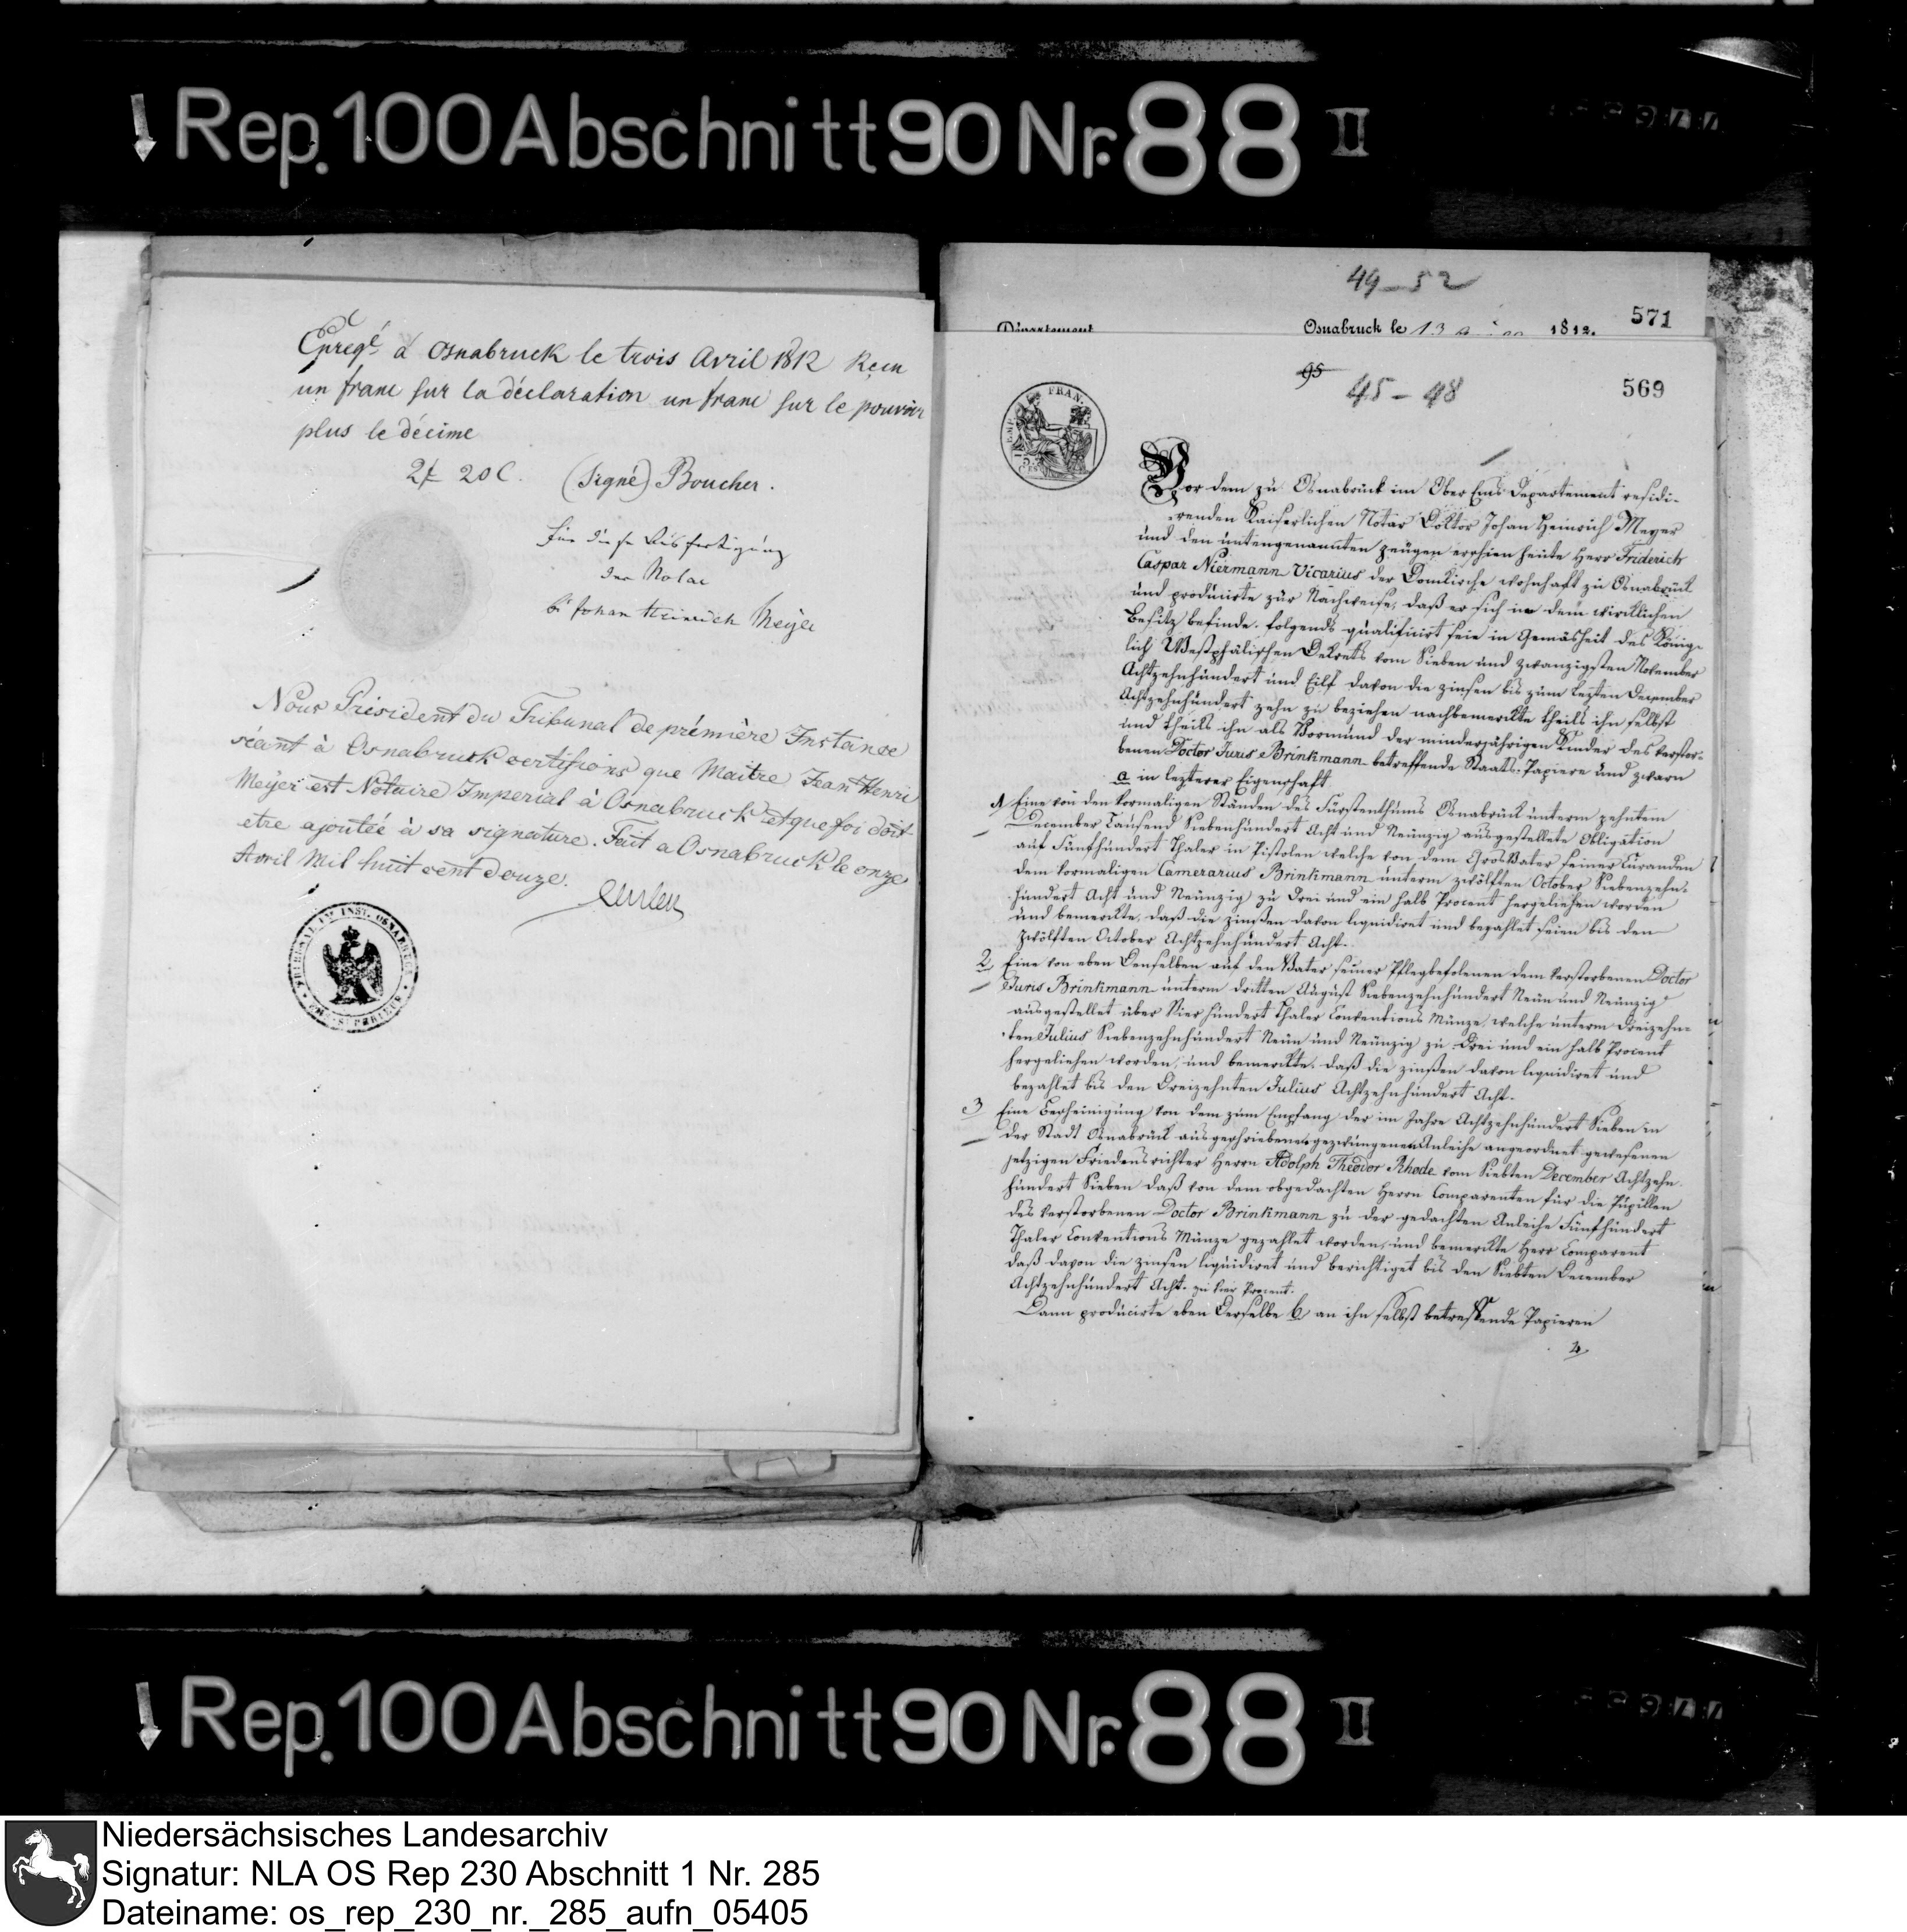 Rep. 100 Abschnitt 90 Nr. 88 II
Enregé à Osnabruck le trois Avril 1812 Reçu
un franc sur la déclaration un franc sur le pouvoir
plus le décime
2f 20 C. (signé) Boucher.
für diese Ausfertigung
der Notar
Johan Heinrich Meyer
Nous Président du Tribunal de prémière Instance
séant à Osnabruck certifions que Maitre Jean Henri
Meyer est Notaire Imperial à Osnabruck et que foi doit
etre ajoutée à sa signature. Fait a Osnabruck le onze
Avril Mil huit cent douze.
TRIBUNAL IM INST. OSNABRUCK
49-52
Département
Osnabruck le 13 1812.
571
95
45-48
569
EMP. FRAN.
Vor dem zu Osnabrück im Ober Ems Departement residi-
renden Kaiserlichen Notar Doktor Johan Heinrich Meyer
und den untengenannten Zeugen erschien heute Herr Friderich
Caspar Niermann Vicarius der Domkirche wohnhaft zu Osnabrück
und producirte zur Nachweise, daß er sich in dem wircklichen
Besitz befinde. folgends qualificirt seie in Gemäsheit des König-
lich Westphälischen Dekrets vom Sieben und zwanzigsten November
Achtzehnhundert und Eilf davon die Zinsen bis zum lezten December
Achtzehnhundert zehn zu beziehen nachbemerkte theils ihn selbst
und theils ihn als Vormund der minderjährigen Kinder des verstor-
benen Doctor Juris Brinkmann betreffende Staats-Papiere und zwarn
a in lezterer Eigenschaft
1 Eine von den vormaligen Ständen des Fürstenthums Osnabrück unterm zehntem
December Tausend Siebenhundert Acht und Neunzig ausgestellete Obligation
auf Fünfhundert Thaler in Pistolen welche von dem Grosvater seiner Curanden
dem vormaligen Camerarius Brinkmann unterm zwölften October Siebenzehn-
hundert Acht und Neunzig zu Drei und ein halb Procent hergeliehen worden
und bemerkte, daß die Zinßen davon liquidiret und bezahlet seien bis den
zwölften October Achtzehnhundert Acht.
2, Eine von eben Denselben auf den Vater seiner Pflegbefolenen dem verstorbenen Doctor
Juris Brinkmann unterm dritten August Siebenzehnhundert Neun und Neunzig
ausgestellet über Vier hundert Thaler Conventions Münze, welche unterm Dreizehn-
ten Julius Siebenzehnhundert Neun und Neunzig zu Drei und ein halb Procent
hergeliehen worden, und bemerkte, daß die Zinßen davon liquidiret und
bezahlet bis den Dreizehnten Julius Achtzehnhundert Acht.
3 Eine Bescheinigung von dem zum Empfang der im Jahre Achtzehnhundert Sieben in
der Stadt Osnabrück ausgeschriebenen gezwungenen Anleihe angeordnet gewesenen
jetzigen Friedensrichter Herrn Adolph Theodor Rhode vom Siebten December Achtzehn
hundert Sieben daß von dem obgedachten Herrn Comparenten für die Pupillen
des verstorbenen Doctor Brinkmann zu der gedachten Anleihe Fünfhundert
Thaler Conventions Münze gezahlet worden, und bemerkte Herr Comparent
daß davon die Zinsen liquidiret und berichtiget bis den Siebten December
Achtzehnhundert Acht. zu vier Procent.
Dann producirte eben Derselbe b, an ihn selbst betreffende Papieren
Rep. 100 Abschnitt 90 Nr. 88 II
Niedersächsisches Landesarchiv
Signatur: NLA OS Rep 230 Abschnitt 1 Nr. 285
Dateiname: os_rep_230_nr._285_aufn_05405